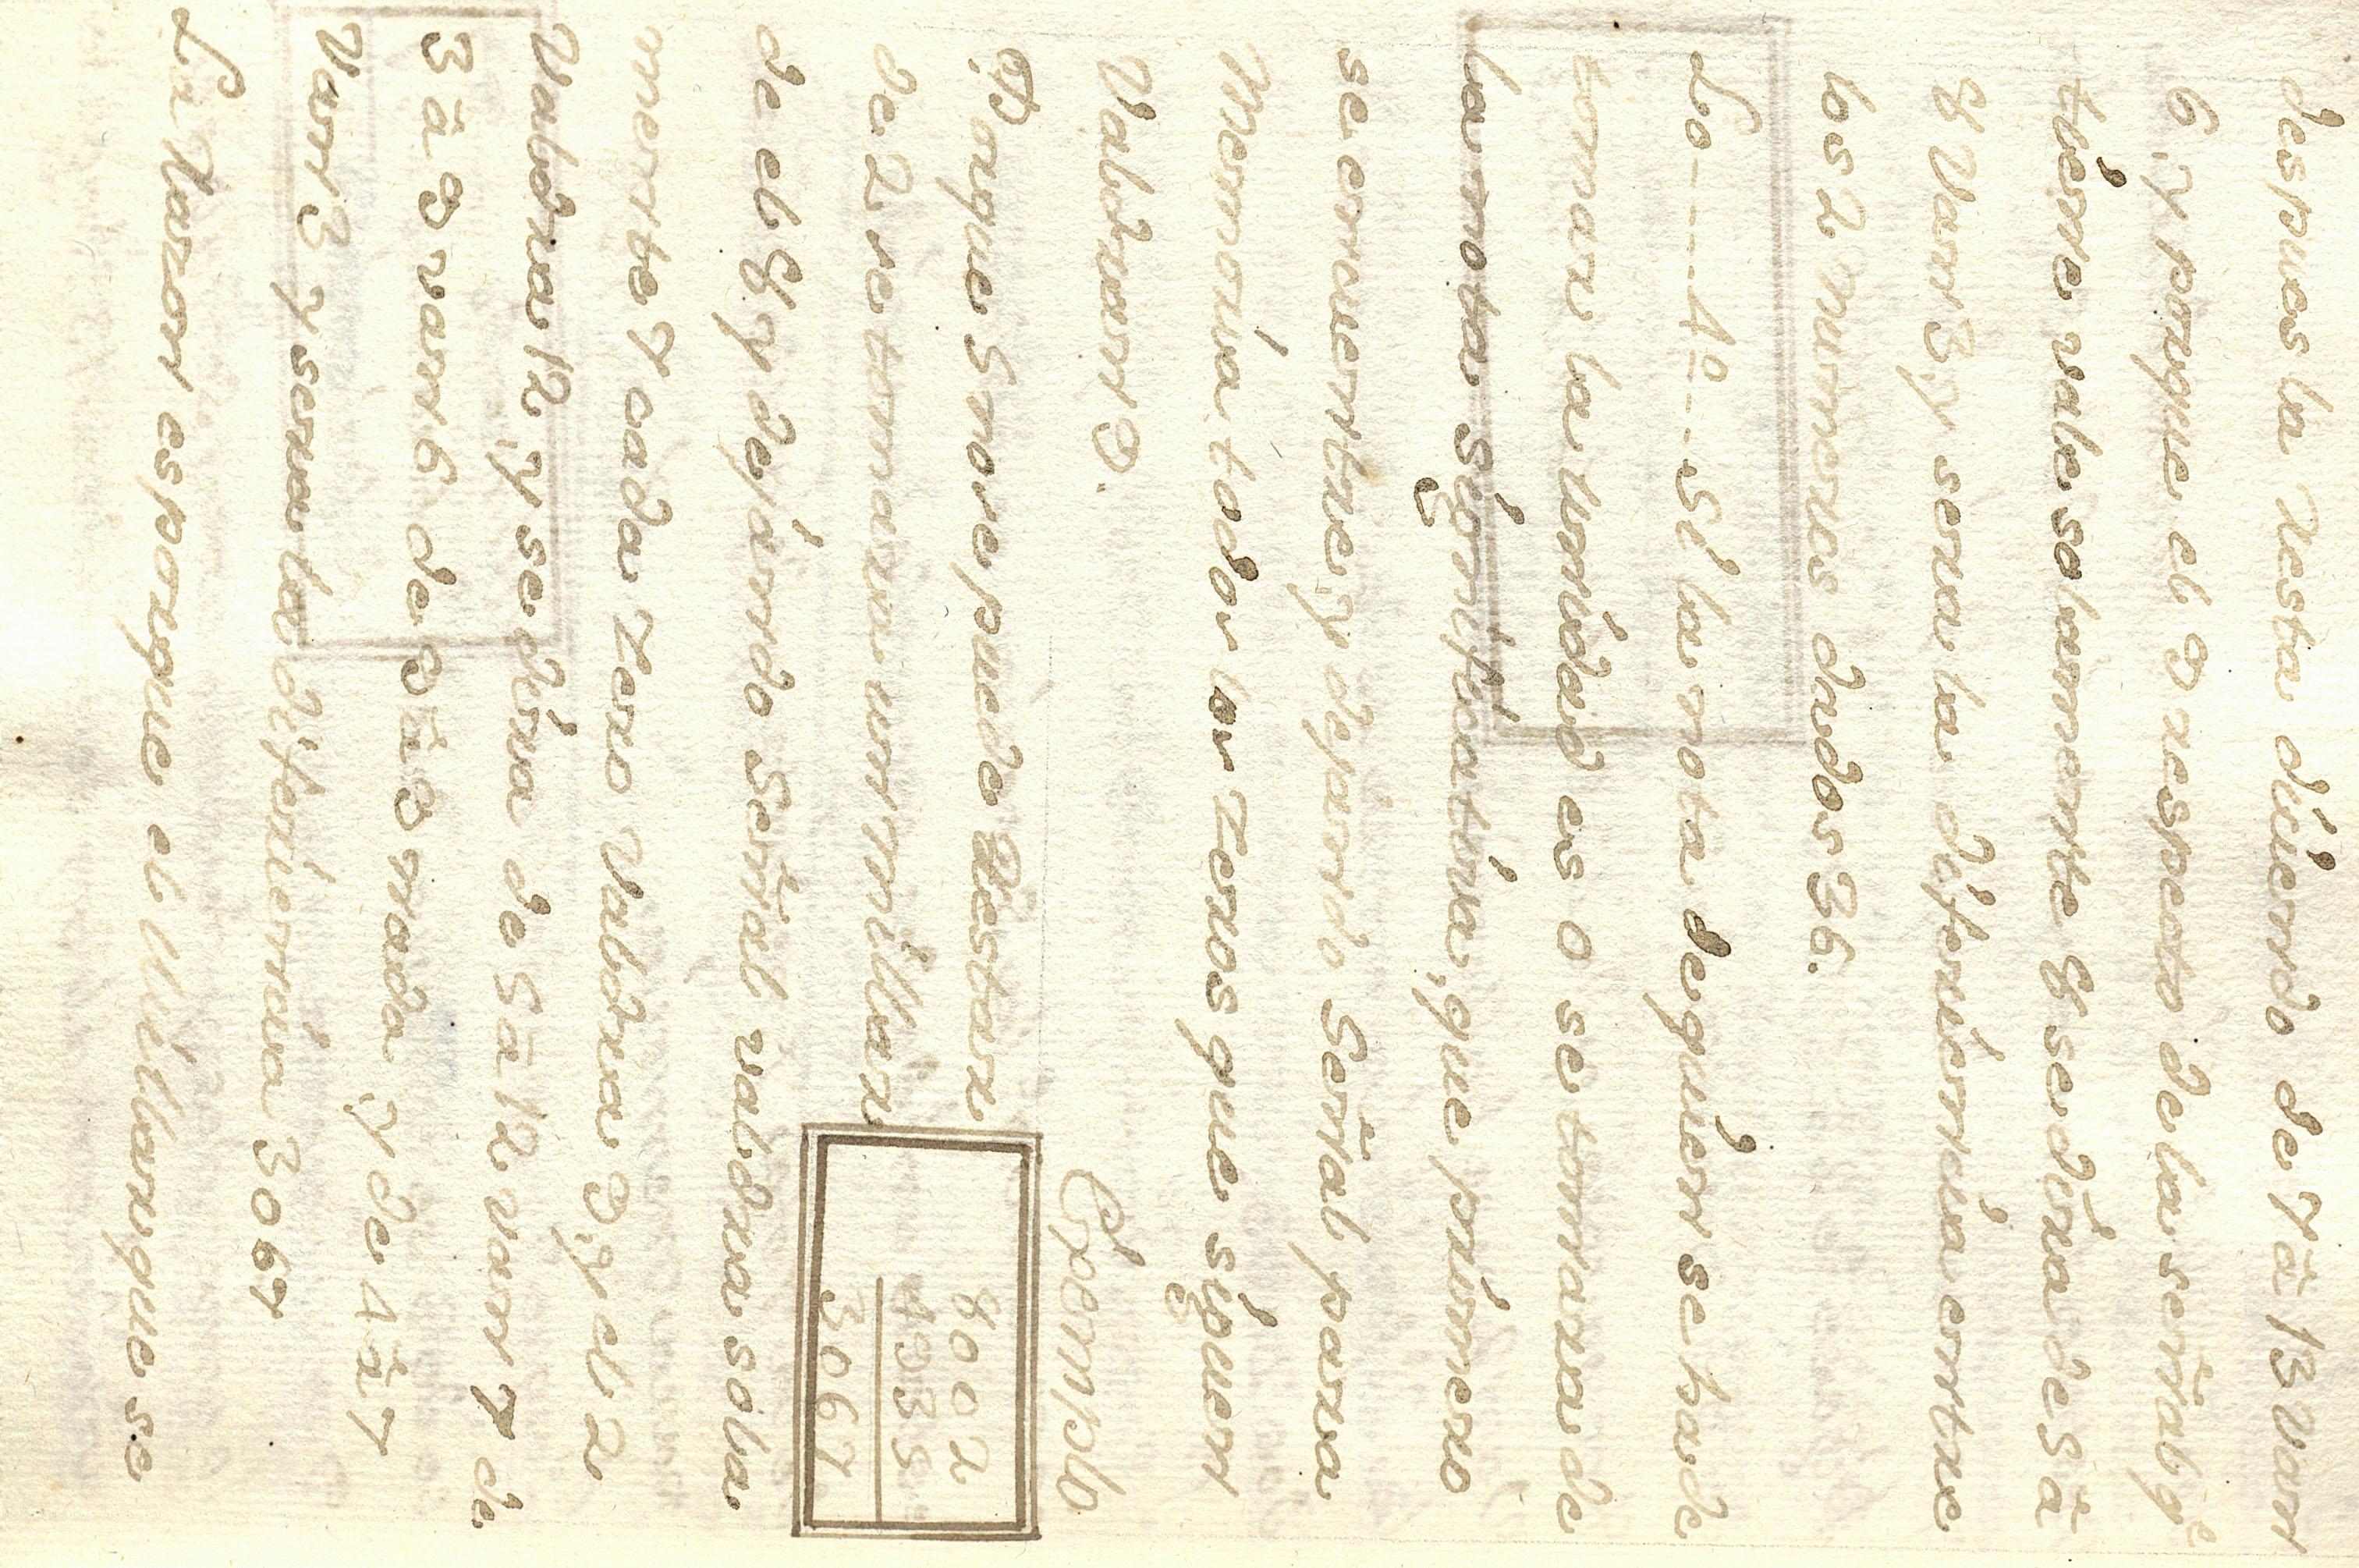 despues la resta diciendo de 7 â 13 van
6, y porque el 9 respecto de la señal q.e
tiene vale solamente 8 se dira de 5 â
8 Van 3, y sera la diferiencia entre
los 2 numeros dados 36.
Lo---4º---Si la nota de quien se ha de
tomar la Unidad es 0 se tomara de
la nota significativa, que primero
se encuentre, y dejando Señal para
Memoria todos los zeros que siguen
Valdran 9.
Exemplo
Porque 5 no se puede Restar
de 2 se tomara un millar
de el 8, y dejando Señal valdra sola
mente 7 cada zero Valdra 9, y el 2
Valdra 12, y se dira de 5 â 12 van 7 de
3 â 9 van 6 de 9 â 9 nada, y de 4 â 7
Van 3 y sera la diferiencia 3067
La Razon es porque el Millar que se
8002
4935
3067